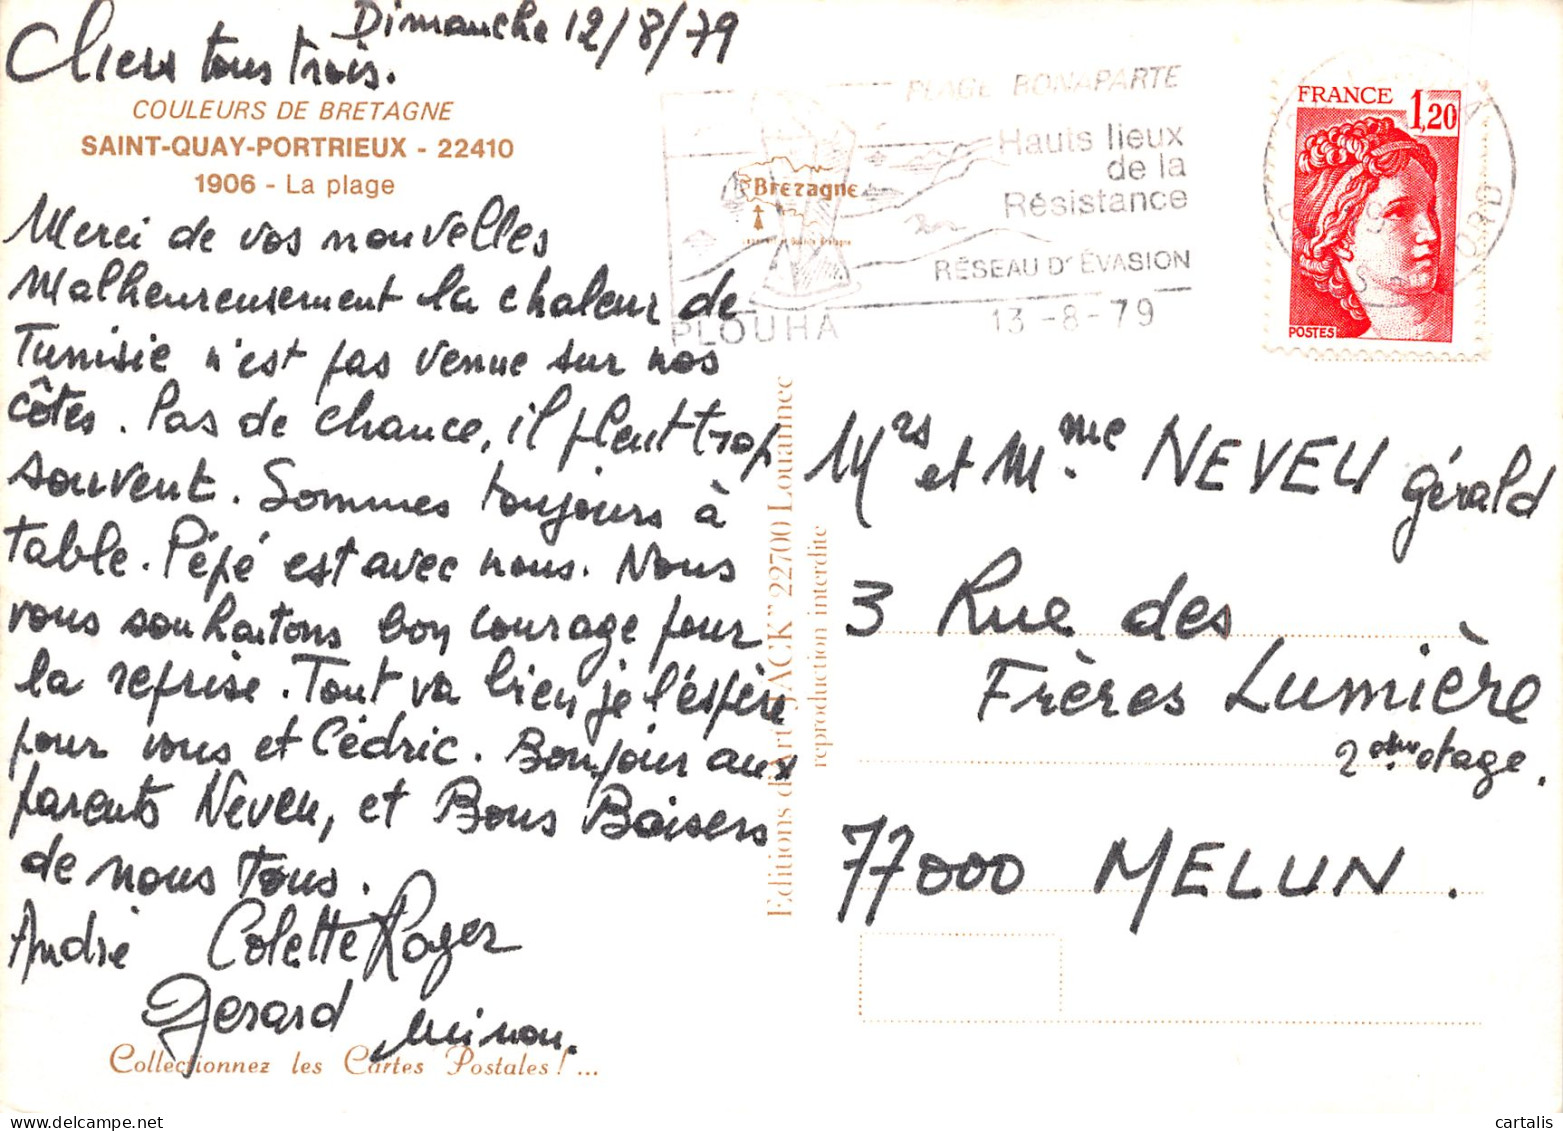 Dimanche 12/8/79
Chers tous trois.
COULEURS DE BRETAGNE
SAINT-QUAY-PORTRIEUX - 22410
1906 - La plage
Merci de vos nouvelles
Malheureusement la chaleur de
Tunisie n'est pas venue sur nos
côtes. Pas de chance, il pleut trop
souvent. Sommes toujours à
table. Pépé est avec nous. Nous
vous souhaitons bon courage pour
la reprise. Tout va bien je l'espère
pour vous et Cédric. Bonjour aux
parents Neveu, et Bons Baisers
de nous tous.
André Colette Roger
Gerard Minou.
Collectionnez les Cartes Postales ! ...
PLAGE BONAPARTE
Hauts lieux
de la
Résistance
RÉSEAU D'ÉVASION
Bretagne
PLOUHA 13-8-79
FRANCE 1,20
POSTES
Editions d'Art "JACK" 22700 Louannec
reproduction interdite
Mrs et Mme NEVEU Gérald
3 Rue des
Frères Lumière
2ème étage.
77000 MELUN.
cartalis